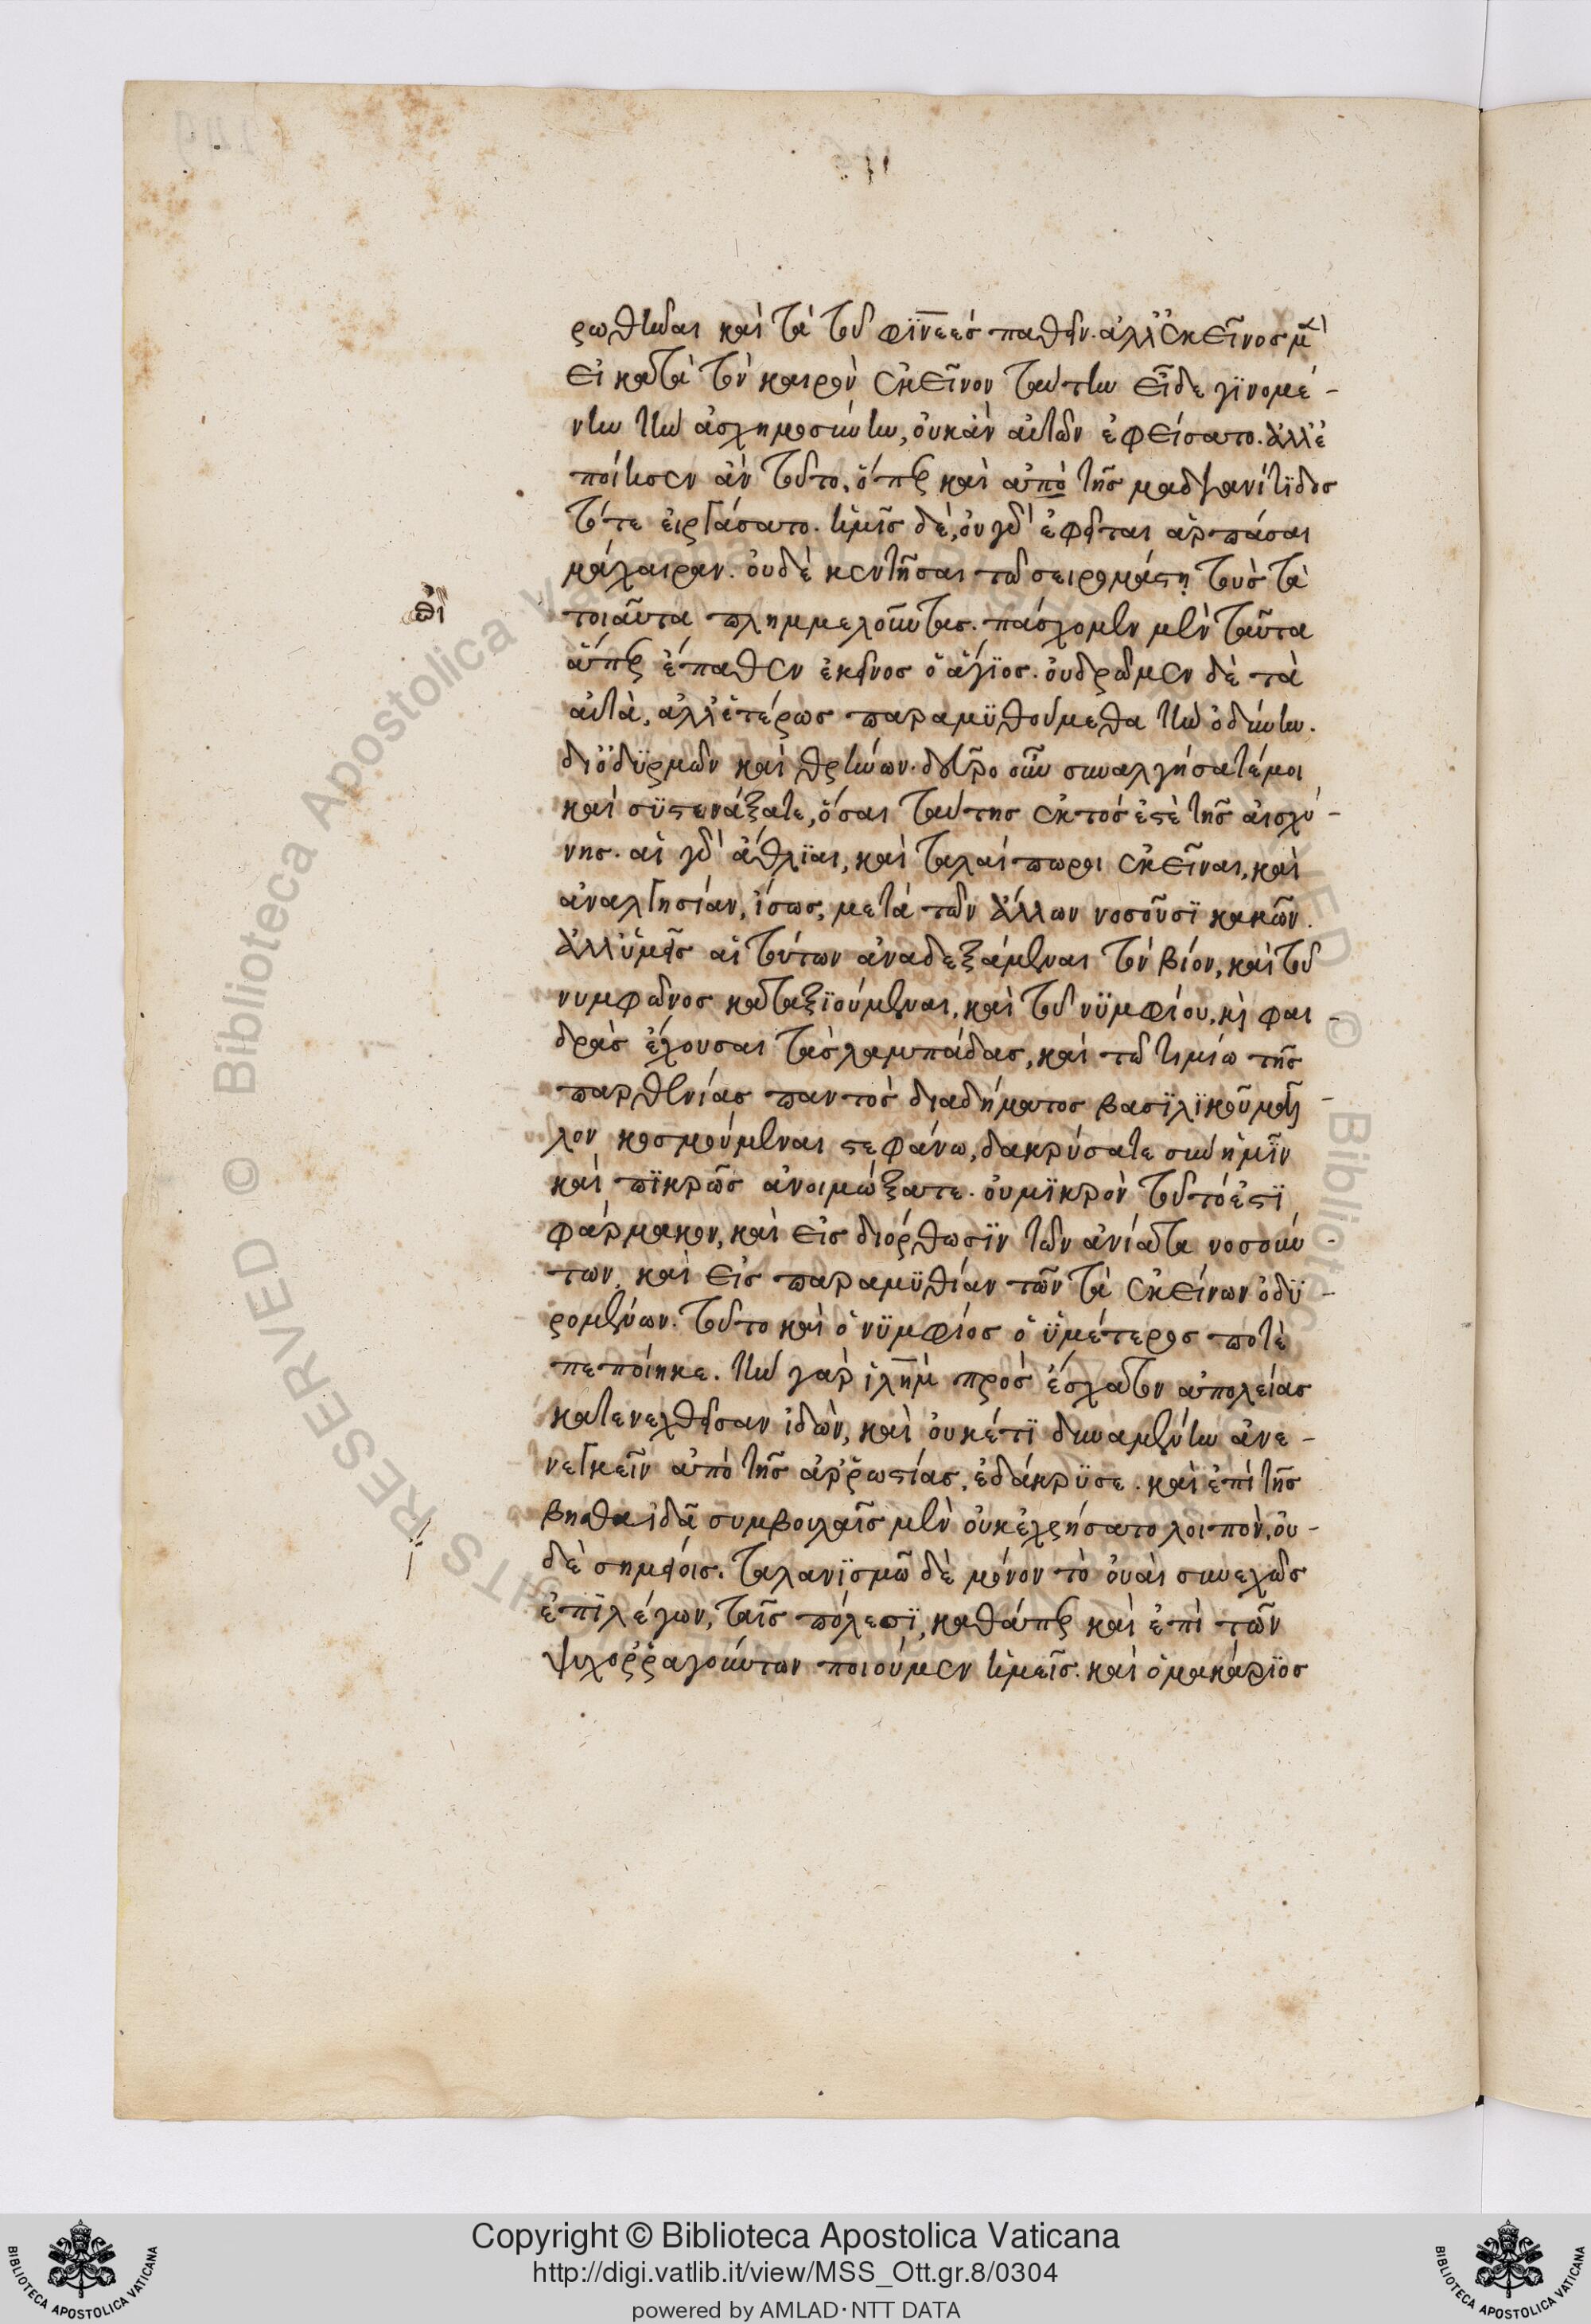 ρωθῆναι καὶ τὰ τοῦ φϊνεὲς παθεῖν. ἀλλ' ἐκεῖνος μὲν
εἰ κατὰ τὸν καιρὸν ἐκεῖνον ταύτην εἶδε γϊνομέ-
νην τὴν ἀσχημοσύνην, οὐκ ἂν αὐτῶν ἐφείσατο. ἀλλ' ἐ
ποίησεν ἂν τοῦτο, ὅπερ καὶ ἀπὸ τῆς μαδϊανίτϊδος
τότε εἰργάσατο. ἡμῖς δὲ, οὐ γὰρ ἐφεῖται ἁρπάσαι
μάχαιραν. οὐδὲ κεντῆσαι τῶ σειρομάστη τοὺς τὰ
τοιαῦτα πλημμελοῦντας. πάσχομεν μὲν ταῦτα
ἅπερ ἔπαθεν ἐκεῖνος ὁ ἅγϊος. οὐ δρῶμεν δὲ τὰ
αὐτὰ, ἀλλ' ἑτέρως παραμϋθούμεθα τὴν ὀδύνην.
δι' ὀδϋρμῶν καὶ θρήνων. δεῦρο οὖν συναλγήσατέ μοι
καὶ σϋστενάξατε, ὅσαι ταύτης ἐκτός ἐστὲ τῆς αἰσχύ-
νης. αἱ γὰρ ἄθλϊαι, καὶ ταλαίπωροι ἐκεῖναι, καὶ
ἀναλγησίαν, ἴσως, μετὰ τῶν ἄλλων νοσοῦσϊ κακῶν.
ἀλλ' ὑμεῖς αἱ τούτων ἀναδεξάμεναι τὸν βίον, καὶ τοῦ
νυμφῶνος καταξϊούμεναι, καὶ τοῦ νϋμφίου, καὶ φαι-
δρὰς ἔχουσαι τὰς λαμπάδας, καὶ τῶ τιμίω τῆς
παρθενίας παντὸς διαδήματος βασϊλϊκοῦ μᾶλ-
λον κοσμούμεναι στεφάνω, δακρύσατε σὺν ἡμῖν
καὶ πϊκρῶς ἀνοιμώξατε. οὐ μϊκρὸν τοῦτό ἐστϊ
φάρμακον, καὶ εἰς διόρθωσϊν τῶν ἀνίατα νοσούν-
των, καὶ εἰς παραμϋθίαν τῶν τὰ ἐκείνων ὀδϋ-
ρομένων. τοῦτο καὶ ὁ νϋμφίος ὁ ϋμέτερος ποτὲ
πεποίηκε. τὴν γὰρ ἱλημ πρὸς ἔσχατον ἀπολείας
κατενεχθεῖσαν ἰδὼν, καὶ οὐκέτϊ δυναμένην ἀνε-
νεγκεῖν ἀπὸ τῆς ἀρρωστίας, ἐδάκρϋσε. καὶ ἐπὶ τῆς
βηθσαϊδᾶ συμβουλαῖς μὲν οὐκ ἐχρήσατο λοιπὸν, οὐ-
δὲ σημείοις. ταλανϊσμῶ δὲ μόνον τὸ οὐαὶ συνεχῶς
ἐπϊλέγων, ταῖς πόλεσϊ, καθάπερ καὶ ἐπὶ τῶν
ψυχορραγούντων ποιούμεν ἡμεῖς. καὶ ὁ μακάρϊος
Copyright © Biblioteca Apostolica Vaticana
http://digi.vatlib.it/view/MSS_Ott.gr.8/0304
powered by AMLAD·NTT DATA